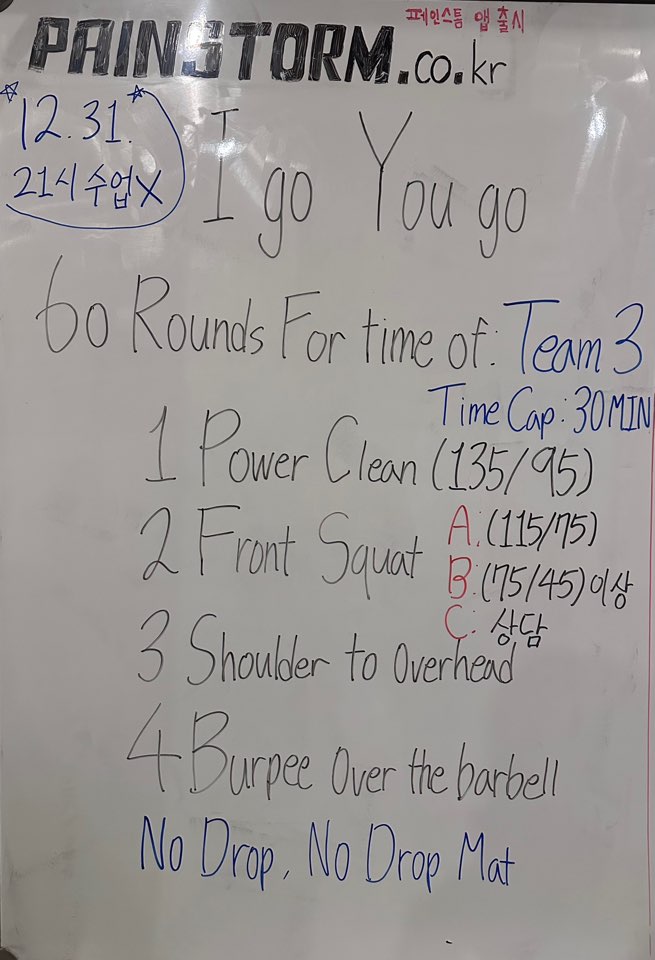 페인스톰 앱 출시
PAINSTORM.co.kr
12.31.
21시 수업X
I go You go
60 Rounds For time of: Team 3
Time Cap: 30MIN
1 Power Clean (135/95)
A: (115/75)
2 Front Squat
B: (75/45) 이상
C: 상담
3 Shoulder to Overhead
4 Burpee Over the barbell
No Drop, No Drop Mat